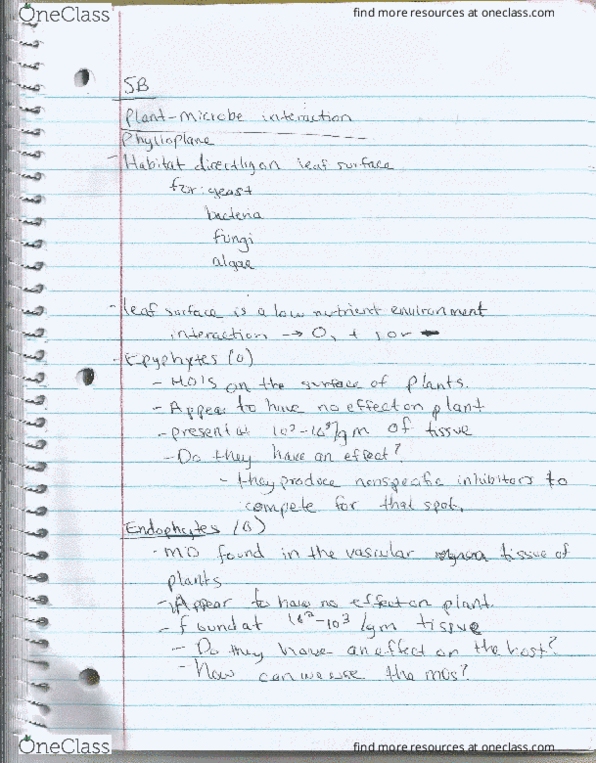 OneClass
find more resources at oneclass.com
5B
Plant-microbe interaction
Phylloplane
- Habitat directly on leaf surface
for: yeast
bacteria
fungi
algae
- leaf surface is a low nutrient environment
interaction → 0, + , or -
- Epyphytes (0)
- M.O's on the surface of plants.
- Appear to have no effect on plant
- present at /gm of tissue
- Do they have an effect?
- they produce nonspecific inhibitors to
compete for that spot.
Endophytes (0)
- MO found in the vascular tissue of
plants
- Appear to have no effect on plant.
- found at 10²-10³ /gm tissue
- Do they have an effect on the host?
- How can we use the mos?
OneClass
find more resources at oneclass.com